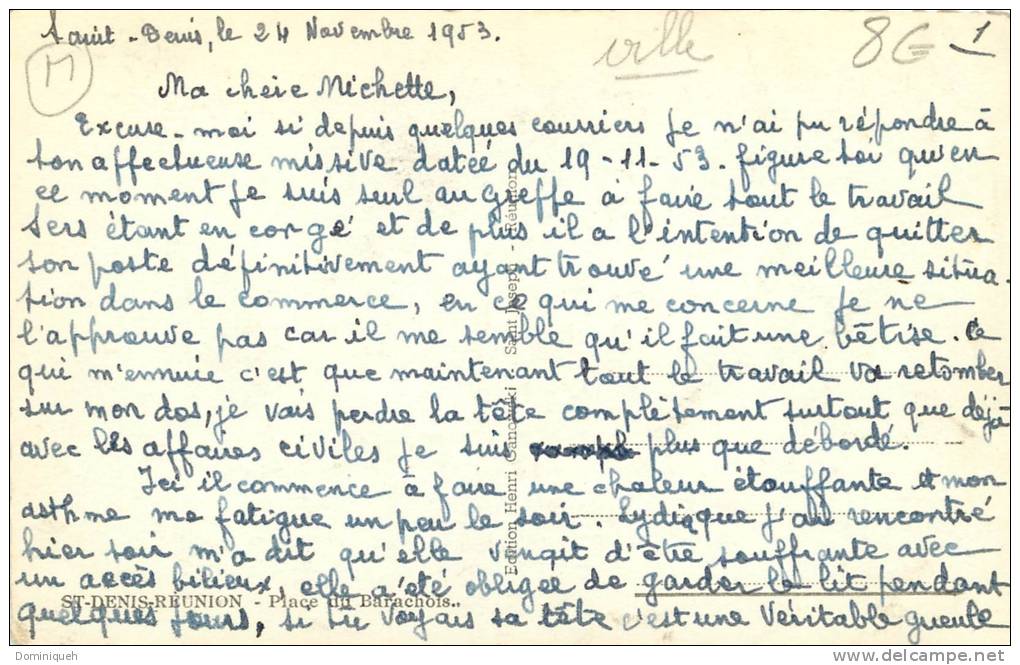 Saint-Denis, le 24 Novembre 1953.
ville
8€
1
M
Ma chère Michette,
Excuse-moi si depuis quelques courriers je n'ai pu répondre à
ton affectueuse missive datée du 19-11-53. figure toi qu'en
ce moment je suis seul au Greffe à faire tout le travail
Sers étant en congé et de plus il a l'intention de quitter
son poste définitivement ayant trouvé une meilleure situa-
tion dans le commerce, en ce qui me concerne je ne
l'approuve pas car il me semble qu'il fait une bêtise. Ce
qui m'ennuie c'est que maintenant tout le travail va retomber
sur mon dos, je vais perdre la tête complètement surtout que déjà
avec les affaires civiles je suis plus que débordé.
Ici il commence à faire une chaleur étouffante et mon
asthme me fatigue un peu le soir. Lydia que j'ai rencontré
hier soir m'a dit qu'elle venait d'être souffrante avec
un accès bilieux, elle a été obligée de garder le lit pendant
quelques jours, si tu voyais sa tête c'est une véritable gueule
ST-DENIS-RÉUNION - Place du Barachois.
Edition Henri Saint Joseph - Réunion
Dominiqueh
www.delcampe.net